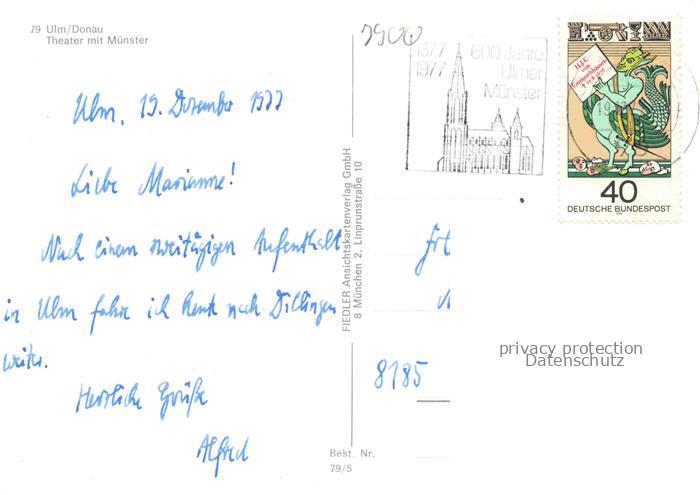 79 Ulm/Donau
Theater mit Münster
Ulm, 19. Dezember 1977
Liebe Marianne!
Nach einem zweitägigen Aufenthalt
in Ulm fahre ich heute nach Dillingen
weiter.
Herzliche Grüße
Alfred
FIEDLER Ansichtskartenverlag GmbH
8 München 2, Linprunstraße 10
Best. Nr.
79/5
1377
1977
600 Jahre
Ulmer
Münster
H.J.C.
von
Grimmelshausen
40
DEUTSCHE BUNDESPOST
8185
privacy protection
Datenschutz